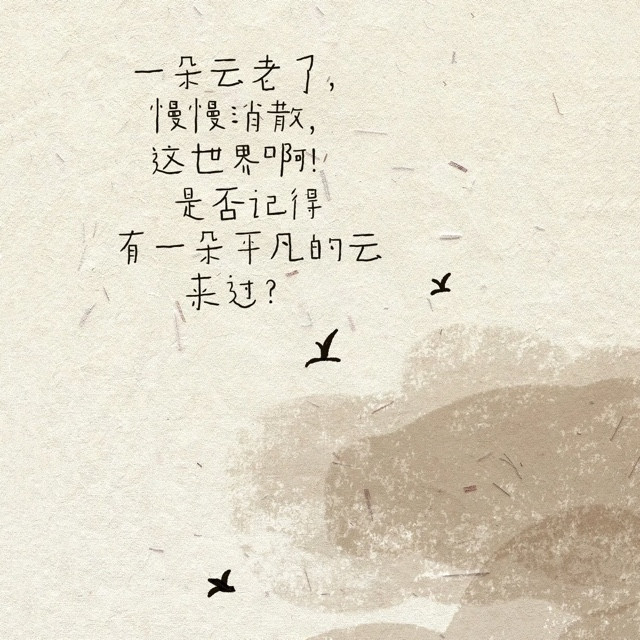 一朵云老了,
慢慢消散,
这世界啊!
是否记得
有一朵平凡的云
来过?